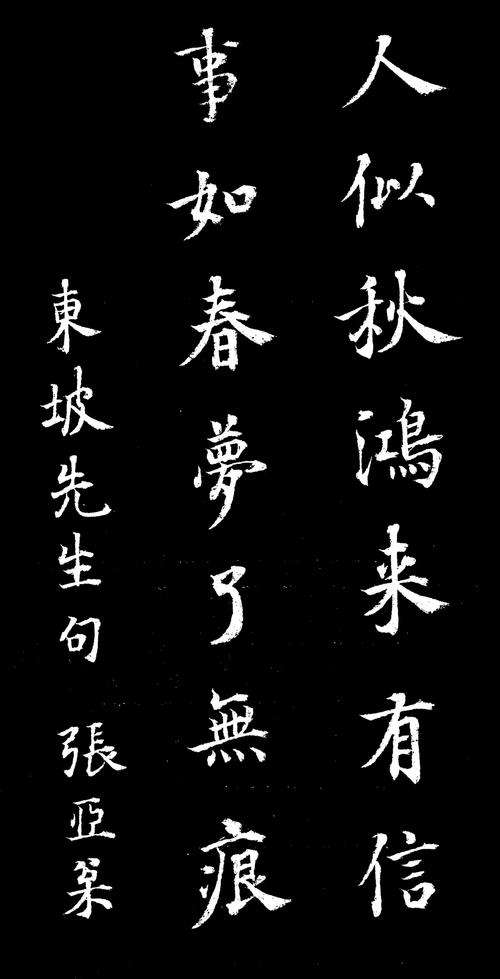 人似秋鴻来有信
事如春夢了無痕
東坡先生句 張亞